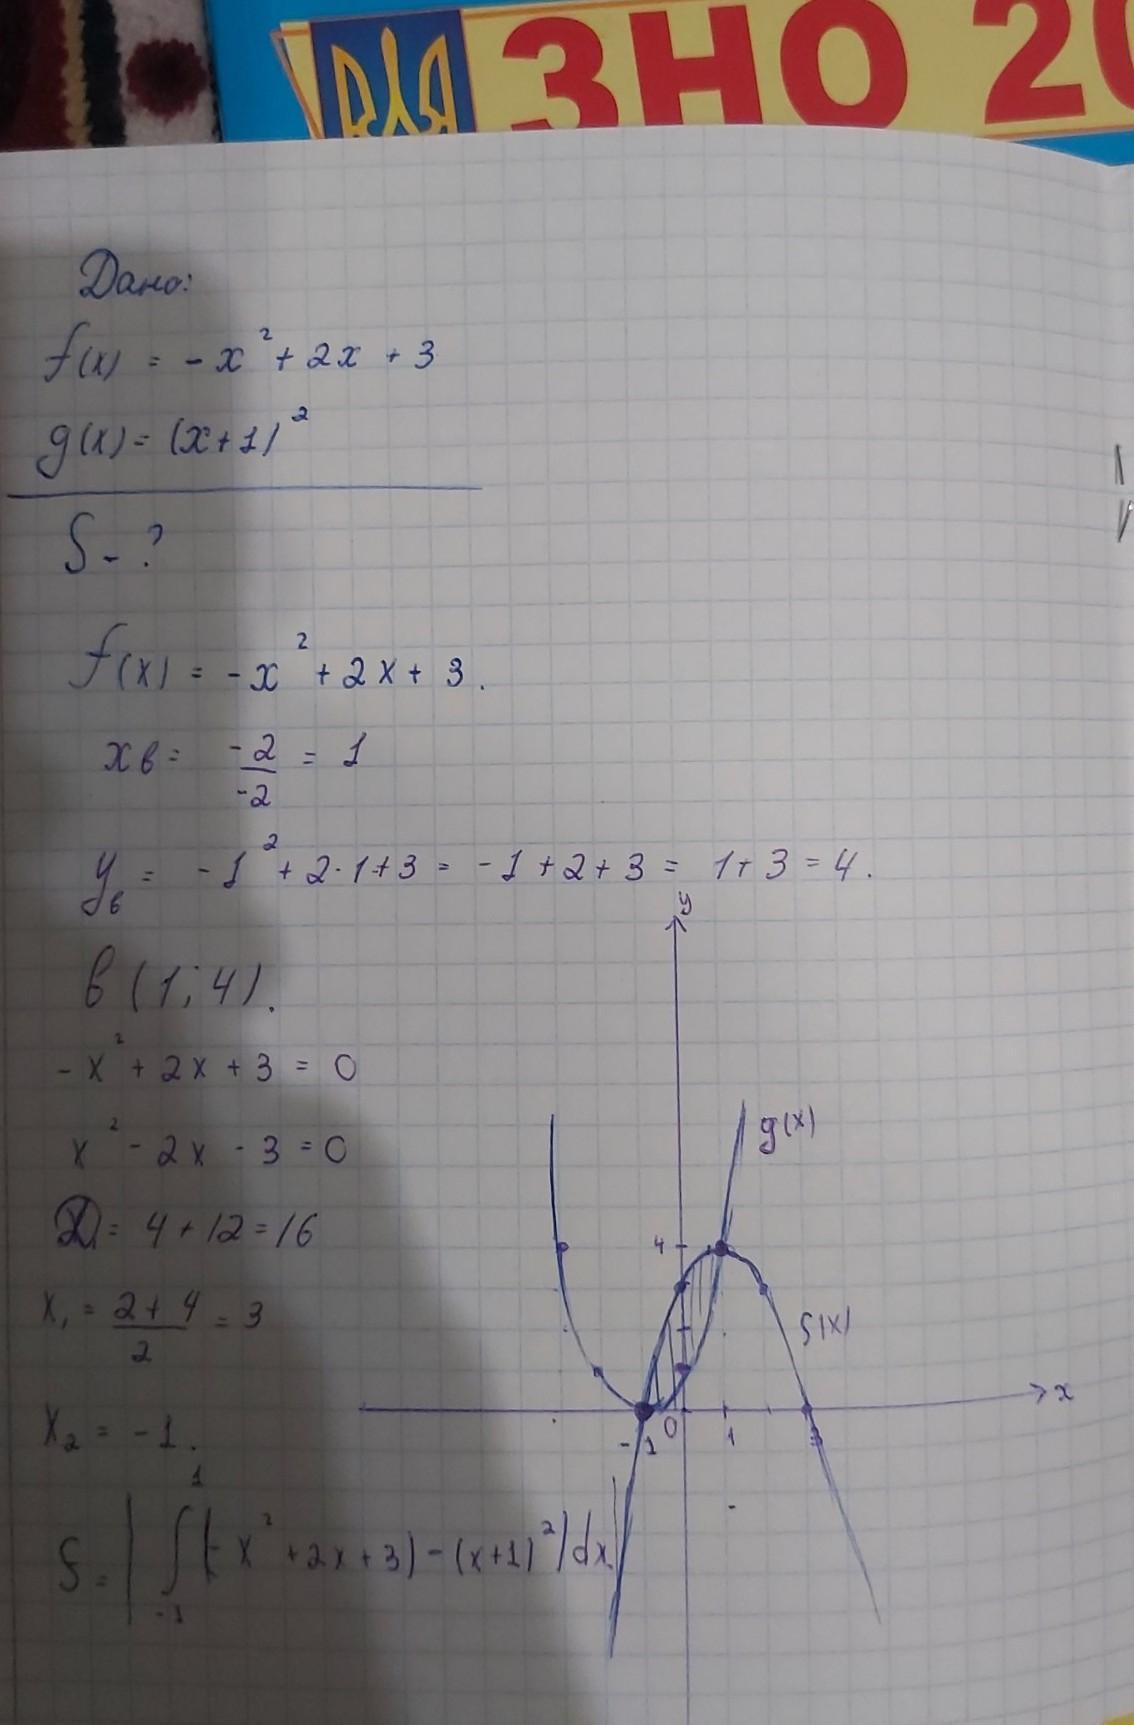 ЗНО 20
Дано:
f(x) = -x² + 2x + 3
g(x) = (x+1)²
S - ?
f(x) = -x² + 2x + 3.
xв = -2/-2 = 1
yв = -1² + 2·1+3 = -1+2+3 = 1+3 = 4.
в (1; 4).
-x² + 2x + 3 = 0
x² - 2x - 3 = 0
D = 4 + 12 = 16
x₁ = 2+4/2 = 3
x₂ = -1.
S = | ∫₋₁¹ (-x² + 2x + 3) - (x+1)²)dx |
y
g(x)
4
f(x)
x
-1 0 1 3